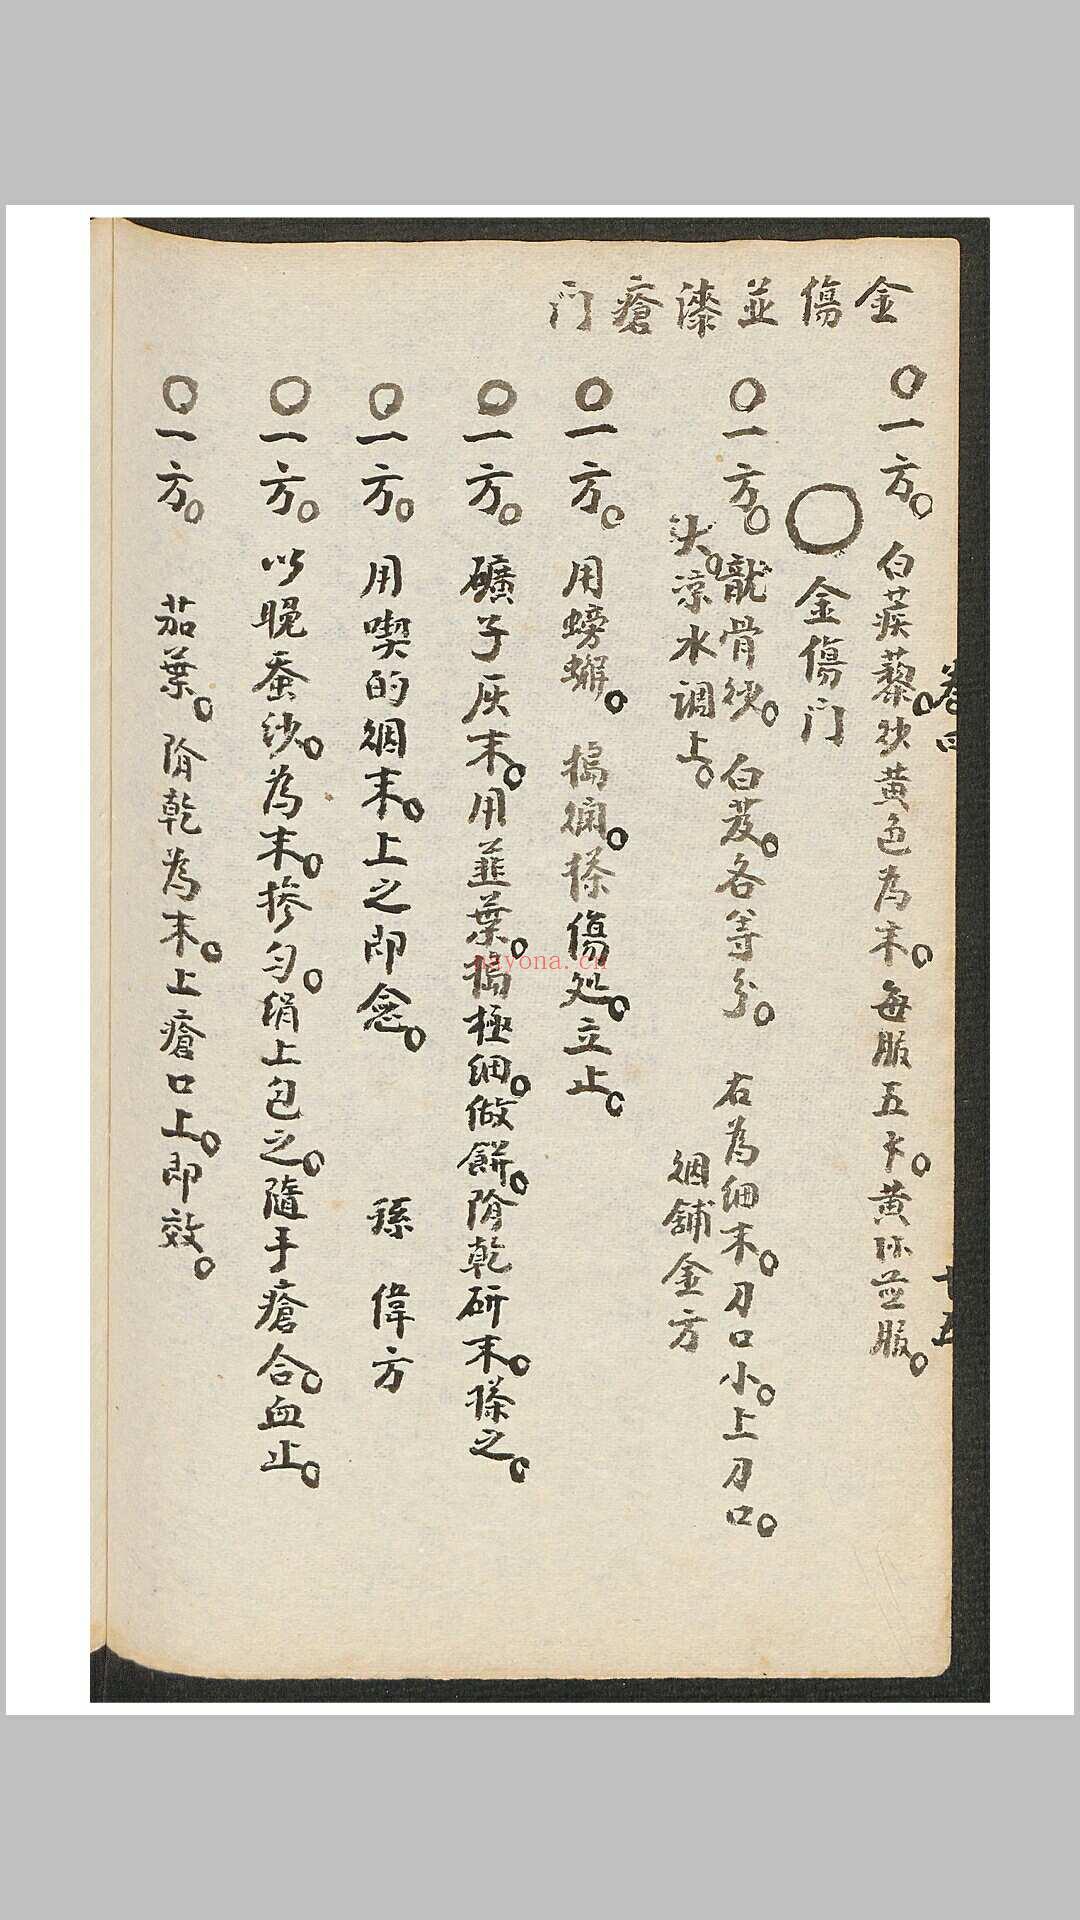 金傷並漆瘡门
卷四 十五
〇一方。白蒺藜。炒黄色為末。每服五卞。黄环並服。
〇金傷门
〇一方。龍骨炒。白芨。各等分。右為细末。刀口小。上刀口。
大。凉水调上。烟舖金方
〇一方。用螃蠏。搗爛。搽傷处。立止。
〇一方。礦子灰末。用韮葉。搗極细。做餅。陰乾研末。搽之。
〇一方。用喫的烟末。上之即愈。孫偉方
〇一方。以晚蚕沙。為末。掺匀。绢上包之。隨手瘡合。血止。
〇一方。茄葉。陰乾為末。上瘡口上。即效。
nayona.cn